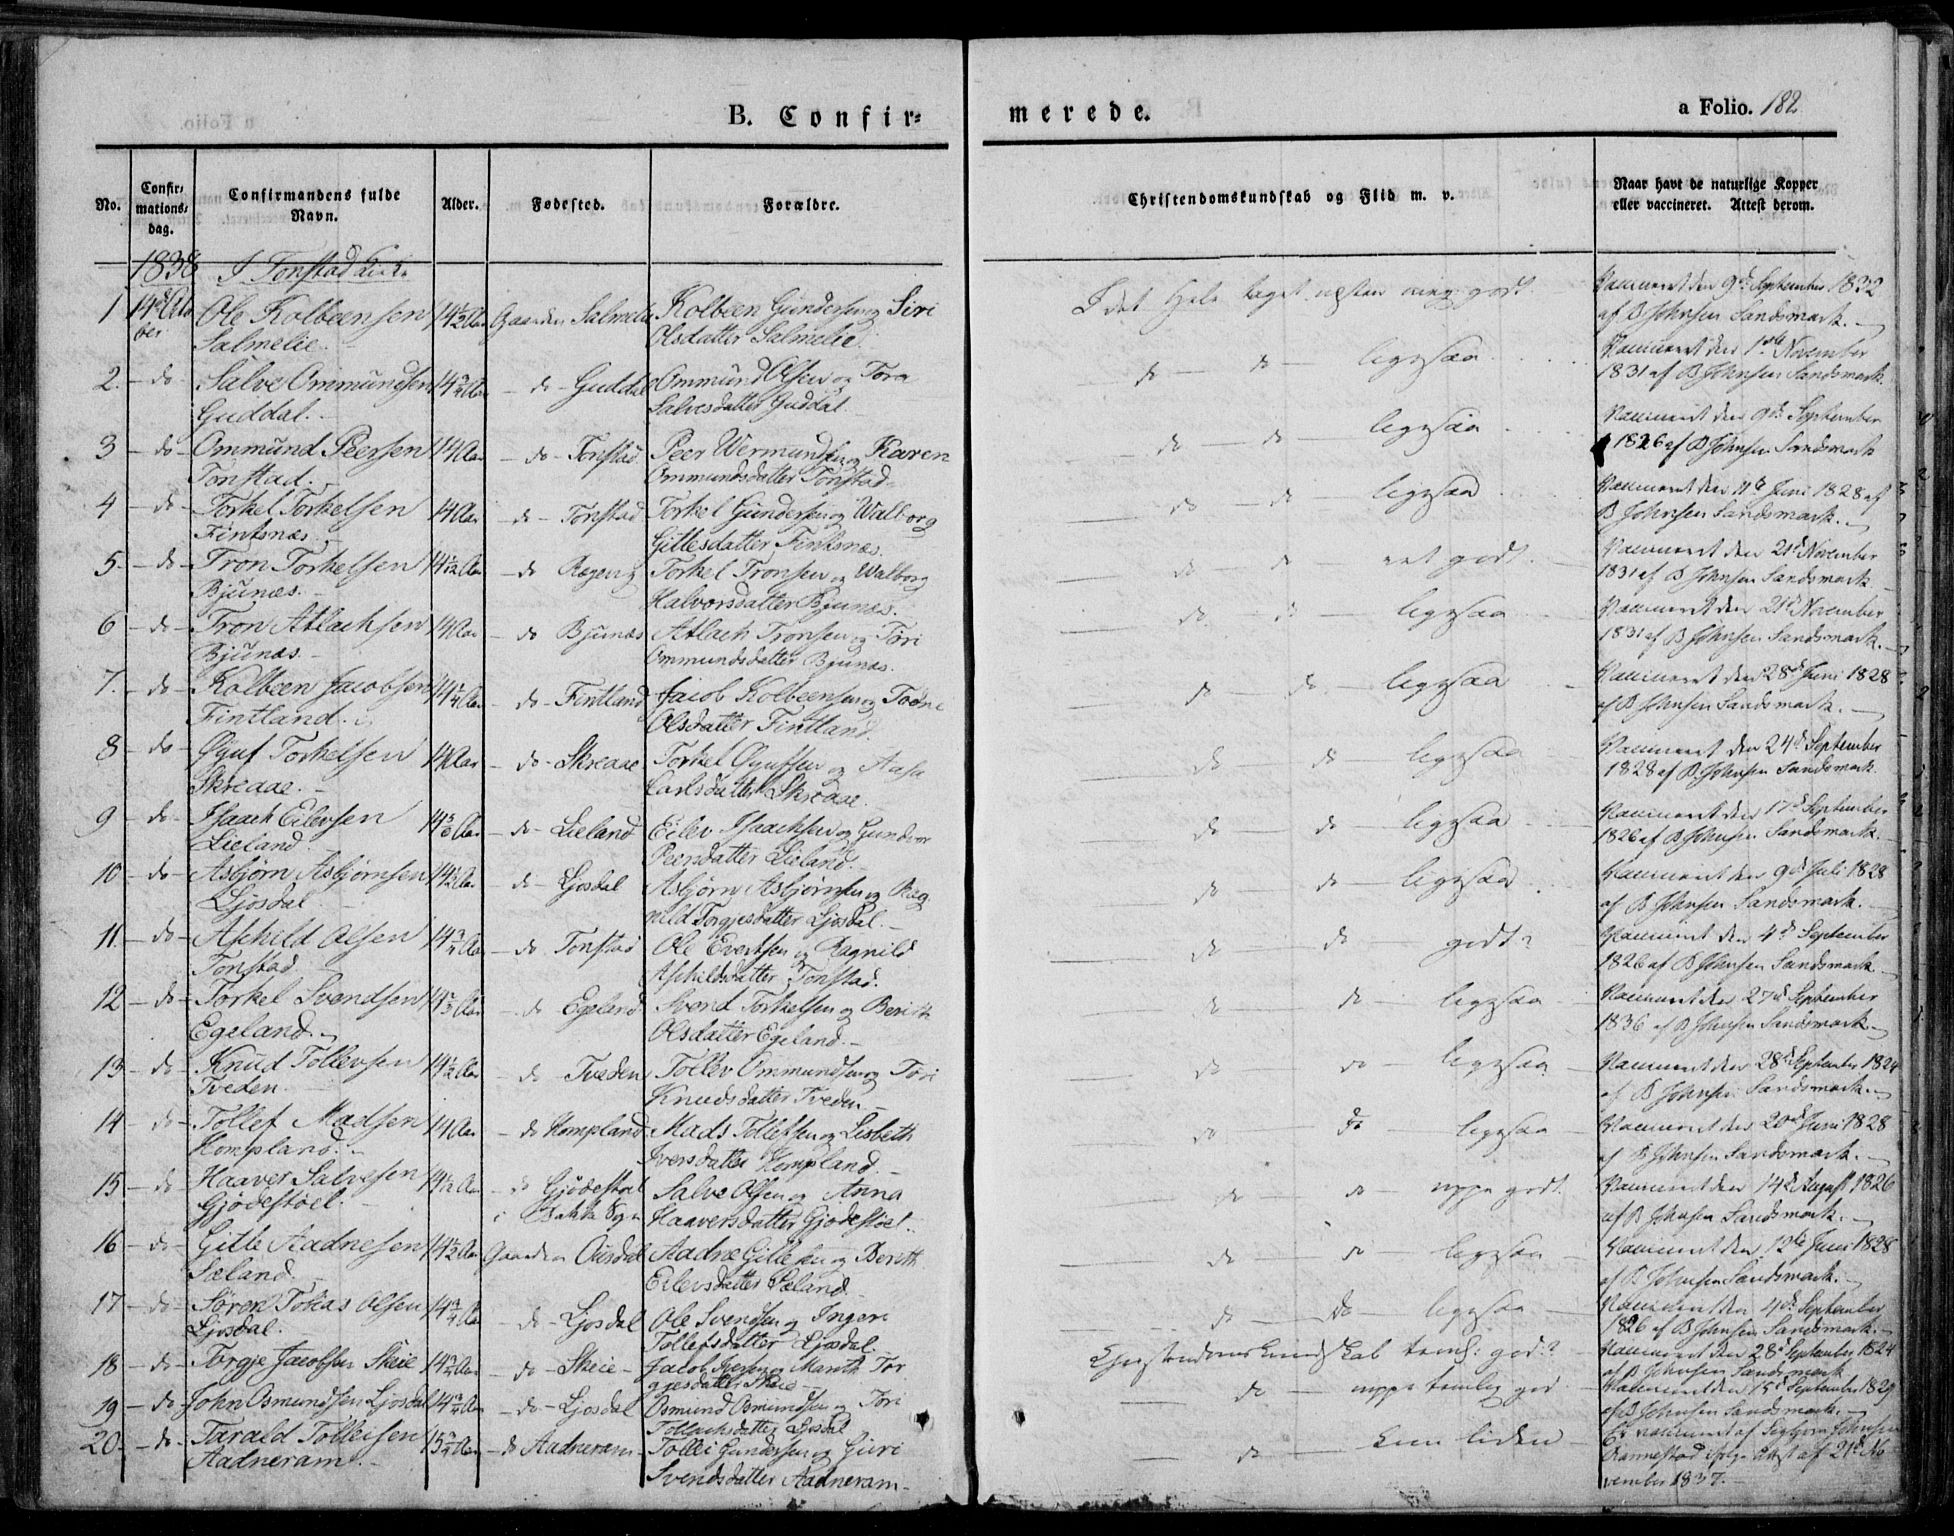 B. Confir=
merede.
a Folio. 182
No.
Confir=
mations=
dag.
Confirmandens fulde
Navn.
Alder.
Fødested.
Forældre.
Christendomskundskab og Flid m. v.
Naar havt de naturlige Kopper
eller vaccineret. Attest derom.
1838 I Tonstad Kirke
1 14de Octo Ole Kolbeensen 14½ Aar Gaarden Salmelie Kolbeen Gundersen og Siri I det Hele taget næsten meg: godt Vaccineret den 9de September 1832
ber Salmelie. Olsdatter Salmelie. af B Johnsen Sandsmark.
2. - do - Salve Ommundsen 14¾ Aar - do - Guddal Ommund Olsen og Tora do - do - ligesaa Vaccineret den 1ste November
Guddal. Salvesdatter Guddal 1831 af B Johnsen Sandsmark.
3 - do - Ommund Peersen 14 Aar - do - Tonstad Peer Wermundsen og Karen do - do - ligesaa Vaccineret den 9de September
Tonstad. Ommundsdatter Tonstad 1826 af B Johnsen Sandsmark
4 - do - Torkel Torkelsen 14 Aar - do - Tonstad Torkel Gundersen og Walborg do - do - ligesaa Vaccineret den 11te Juni 1828 af
Fintsnæs. Gitlesdatter Fintsnæs. B Johnsen Sandsmark.
5. - do - Tron Torkelsen 14 Aar - do Torkel Tronsen og Walborg do - do - ret godt. Vaccineret den 21de November
Bjunæs. Halvorsdatter Bjunæs. 1831 af B Johnsen Sandsmark
6 - do - Tron Atlachsen 14 Aar - do Bjunæs Atlach Tronsen og Tori do - ligesaa Vaccineret den 21de November
Bjunæs. Ommundsdatter Bjunæs. 1831 af B Johnsen Sandsmark.
7. - do - Kolbeen Jacobsen 14¼ Aar - do - Fintland Jacob Kolbeensen og do - do - ligesaa Vaccineret den 28de Juni 1828
Fintland. Olsdatter Fintland af B Johnsen Sandsmark.
8 do - Øguf Torkelsen 14 Aar - do - Skreaae Torkel Ogufsen og Aasa do do - ligesaa Vaccineret den 24de September
Skreaae. Carlsdatter Skreaae. 1828 af B. Johnsen Sandsmark.
9 - do - Isaach Eilevsen 14 Aar - do - Lieland Eilev Isaachsen og Gundvor do do - ligesaa Vaccineret den 17de September
Lieland Peersdatter Lieland. 1826 af B Johnsen Sandsmark.
10 - do - Asbjørn Asbjørnsen 14½ Aar - do - Ljosdal Asbjørn Asbjørnsen og Rag do do - ligesaa Vaccineret den 9de Juli 1828
Ljosdal nild Torgjesdatter Ljosdal. af B Johnsen Sandsmark.
11. - do - Aschild Olsen 14¾ Aar - do Tonstad Ole Evertsen og Ragnild do do godt Vaccineret den 4de September
Tonstad Aschildsdatter Tonstad. 1826 af B Johnsen Sandsmark.
12 - do - Torkel Svendsen 14 Aar - do Egeland Svend Torkelsen og Berith do do - ligesaa Vaccineret den 27de September
Egeland. Olsdatter Egeland. 1836 af B Johnsen Sandsmark
13 - do - Knud Tollevsen 14½ Aar - do Tveden Tollev Ommundsen og Tori do do - ligesaa Vaccineret den 28de September 1824
Tveden Knudsdatter Tveden af B Johnsen Sandsmark.
14 - do - Tollef Madsen 14 Aar - do Hompland Mads Tollefsen og Lisbeth do do - ligesaa Vaccineret den 20de Juni 1828
Hompland. Iversdatter Hompland. af B Johnsen Sandsmark.
15 - do Haaver Salvesen 14½ Aar - do Gjødestøel Salve Olsen og Anna do do - godt. Vaccineret den 14de August 1826
Gjødestøel. i Bakke Sogn Haaversdatter Gjødestøel. af B Johnsen Sandsmark.
16 - do - Gitle Aadnesen 14½ Aar Gaarden Ousdal Aadne Gitlesen og Berith do do ligesaa Vaccineret den 12te Juni 1828
Sæland. Eilevsdatter Sæland. af B Johnsen Sandsmark.
17 - do - Søren Tobias Olsen 14¾ Aar - do - Ljosdal Ole Svendsen og Ingeri do - do - ligesaa Vaccineret den 4de September
Ljosdal. Tollefsdatter Ljosdal. 1826 af B Johnsen Sandsmark.
18 - do - Torgje Jacobsen Skeie 14¾ Aar - do - Skeie - Jacob Iversen og Marith Tor Christendomskundskab teml: god. Vaccineret den 28de September 1824
gjesdatter Skeie af B Johnsen Sandsmark
19 - do John Osmundsen Ljosdal 14¾ Aar - do - Ljosdal Osmund Osmundsen og Tori do - neppe temlig god Vaccineret den 15de September 1829
Tollachsdatter Ljosdal af B Johnsen Sandsmark.
20. - do - Tarald Tolleisen 15¾ Aar - do Aadneram Tollei Gundersen og Guri do - kun liden Er vaccineret af Sigbjørn Johnsen
Aadneram. Svendsdatter Aadneram. Rannestad ifølge Attest af 21de No
vember 1837.